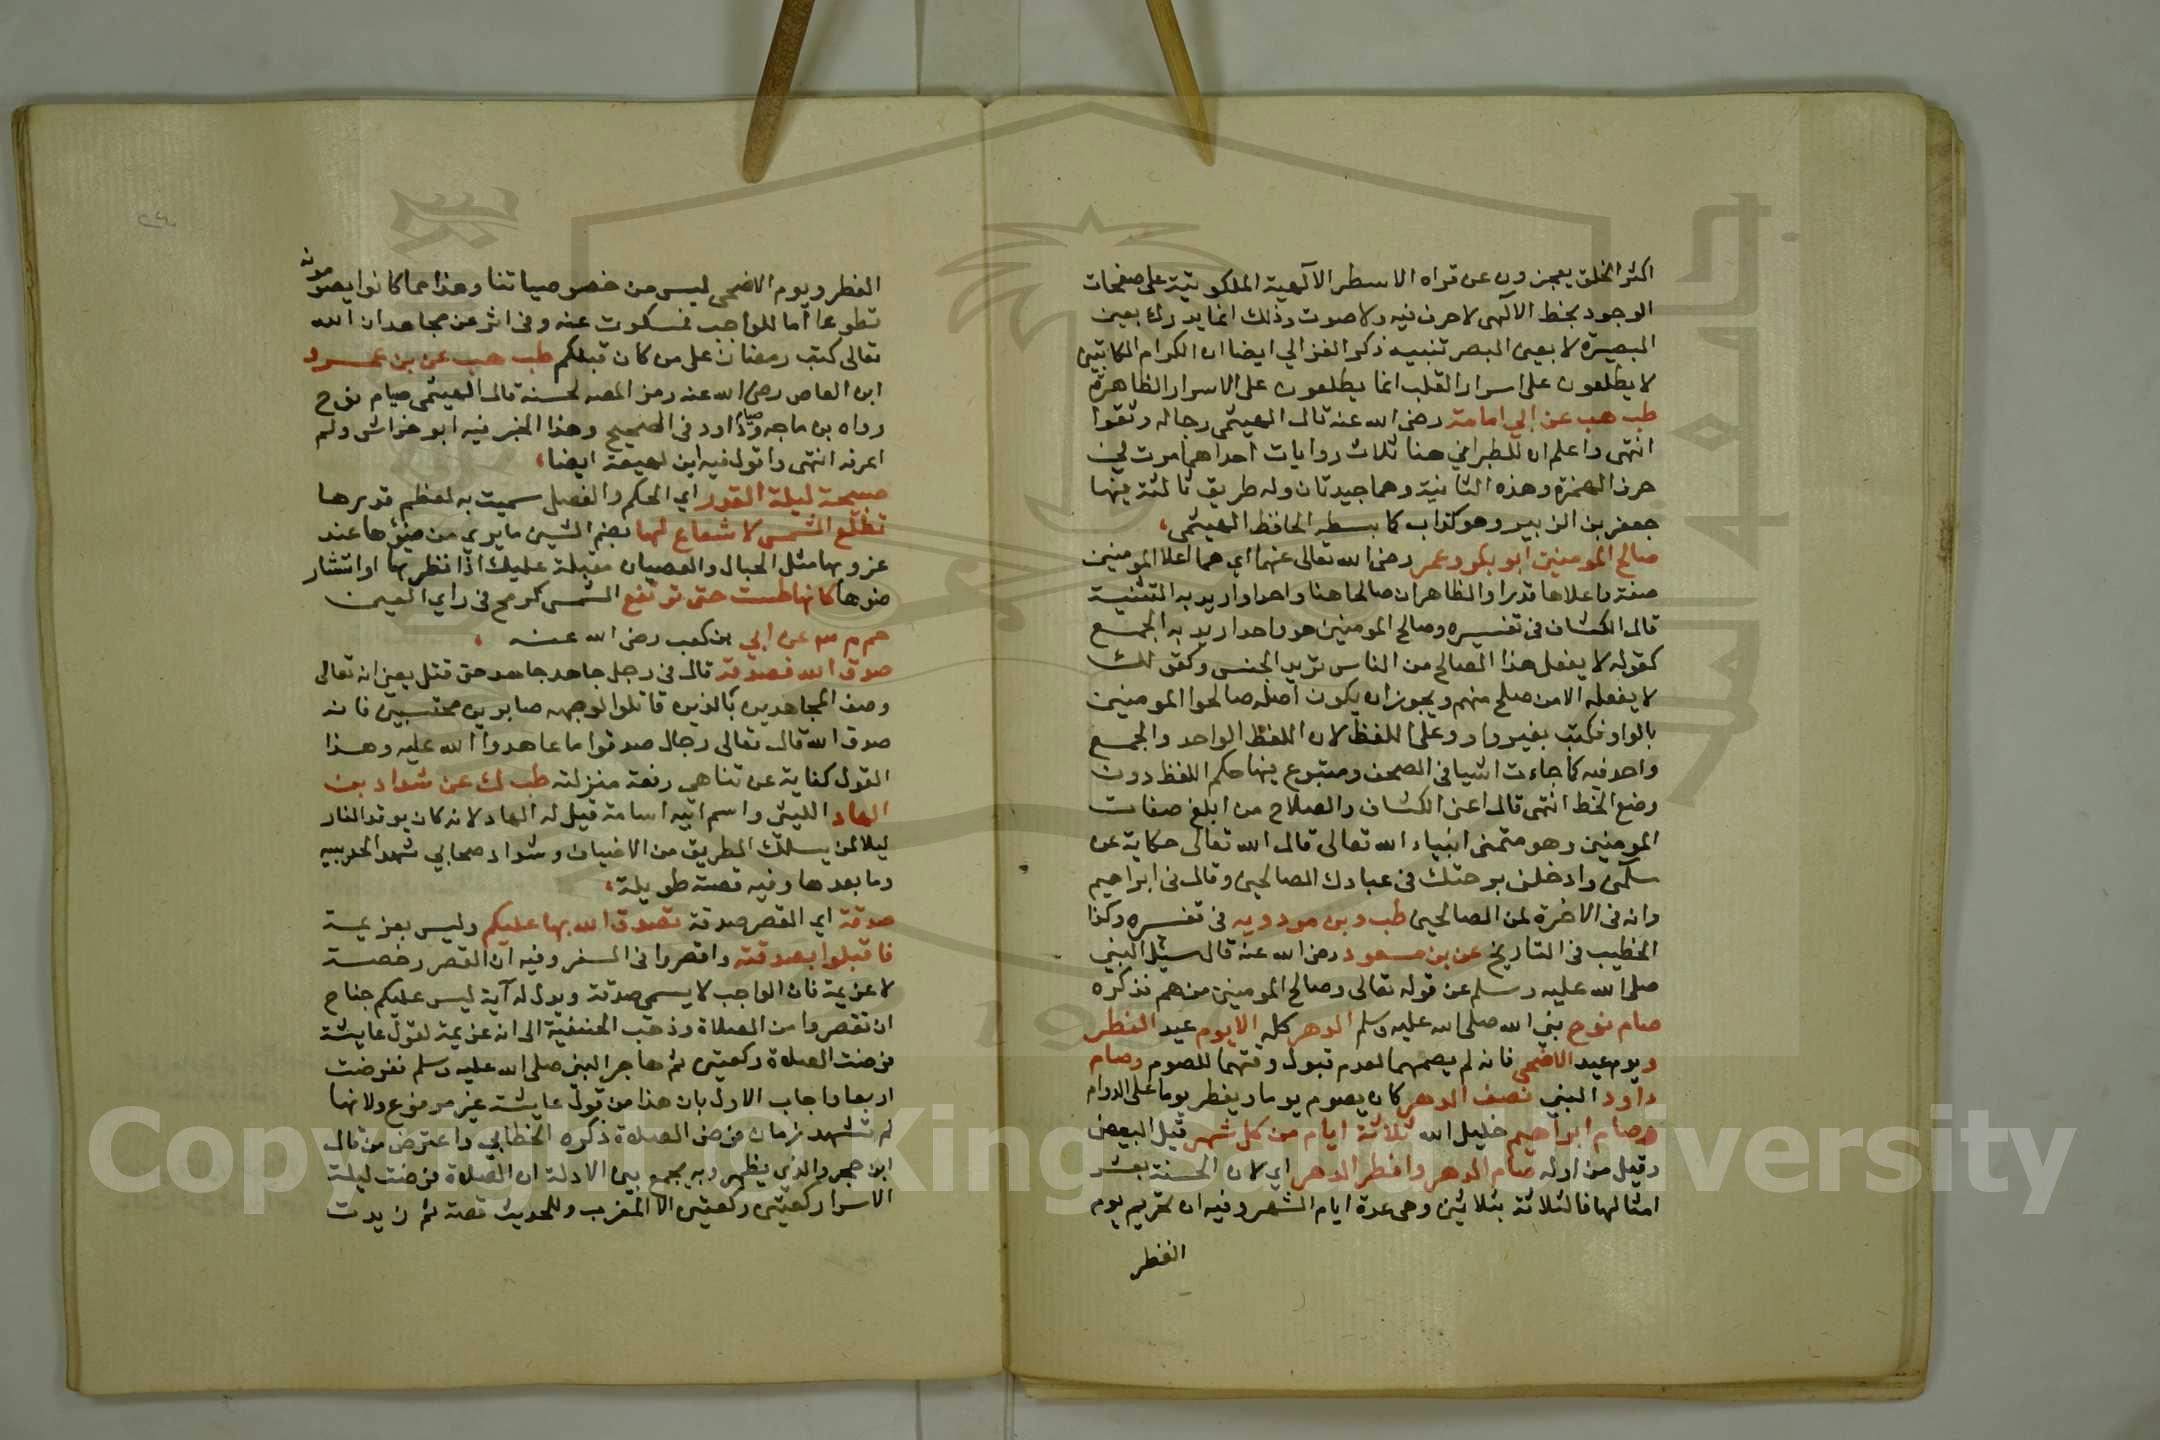 اكثر الخلق يعجزون عن قراه الاسطر الآلهية الملكوتية على صفحات
الوجود بخط الآلهى لا حرف فيه ولا صوت وذلك انما يدرك بعين
البصيرة لا بعين البصر تنبيه ذكر الغزالي ايضا ان الكرام الكاتبين
لا يطلعون على اسرار القلب انما يطلعون على الاسرار الظاهرة
طب هب عن ابي امامة رضى الله عنه قال الهيثمى رجاله وثقوا
انتهى واعلم ان للطبراني هنا ثلاث روايات احداها مرت في
حرف الهمزة وهذه الثانية وهما جيدتان وله طريق ثالثة فيها
جعفر بن الزبير وهو كذاب كما بسطه الحافظ الهيثمى
صالح المومنين ابو بكر وعمر رضى الله تعالى عنهما اي هما اعلا المومنين
صفة واعلاها قدرا والظاهر ان صالحا هنا واحد اوريد به التثنية
قال الكشاف فى تفسيره وصالح المومنين هو واحد اريد به الجمع
كقوله لا يفعل هذا الصالح من الناس تريد الجنس وكقولك
لا يفعله الا من صلح منهم ويجوز ان يكون اصله صالحوا المومنين
بالواو فكتب بغير واو وعلى اللفظ لان اللفظ الواحد والجمع
واحد فيه كما جاءت اشيا فى المصحف ومتبوع فيها حكم اللفظ دون
وضع الخط انتهى قال اعنى الكشاف والصلاح من ابلغ صفات
المومنين وهو متمنى انبياء الله تعالى قال الله تعالى حكاية عن
سلمن وادخلنى برحتك فى عبادك الصالحين وقال فى ابراهيم
وانه فى الاخرة لمن الصالحين طب وبن مردويه فى تفسره وكذا
الخطيب فى التاريخ عن بن مسعود رضى الله عنه قال سئل النبي
صلى الله عليه وسلم عن قوله تعالى وصالح المومنين من هم فذكره
صام نوح نبي الله صلى الله عليه وسلم الدهر كله الا يوم عيد الفطر
ويوم عيد الاضحى فانه لم يصمهما لعدم قبول وقتهما للصوم وصام
داود النبي نصف الدهر كان يصوم يوما ويفطر يوما على الدوام
وصام ابراهيم خليل الله ثلاثة ايام من كل شهر قيل البيض
وقيل من اوله صام الدهر وافطر الدهر اي لان الحسنة بعشر
امثالها فالثلاثة بثلاثين وهى عدة ايام الشهر وفيه ان تحريم يوم
الفطر
٢٤
الفطر ويوم الاضحى ليس من خصوصياتنا وهذا مما كانوا يصومونه
تطوعا اما للواجب فسكوت عنه وفى اثر عن مجاهد ان الله
تعالى كتب رمضان على من كان قبلكم طب هب عن بن عمرو
ابن العاص رضى الله عنه رمز المصه لحسنه قال الهيثمى صيام نوح
رواه بن ماجه وصيام داود فى الصحيح وهذا الخبر فيه ابو فراش ولم
اعرفه انتهى واقول فيه ابن لهيعة ايضا
صبيحة ليلة القدر اي الحكم والفصل سميت به لعظم قدرها
تطلع الشمس لا شعاع لها بضم الشين ما يري من ضؤها عند
غروبها مثل الحبال والقضبان مقبلة عليك اذا نظر بها او انتشار
ضوها كانها طست حتى ترتفع الشمس كرمح فى راي العين
حم م عن ابي بن كعب رضى الله عنه
صدق الله فصدقه قال فى رجل جاهد جاهد حتى قتل يعنى انه تعالى
وصف المجاهدين بالذين قاتلوا لوجهه صابرين محتسبين فانه
صدق الله قال تعالى رجال صدقوا ما عاهدوا الله عليه وهذا
القول كناية عن تناهي رفعة منزلته طب ك عن شداد بن
الهاد الليثى واسم ابيه اسامة قيل له الهاد لانه كان يوقد النار
ليلا لمن يسلك الطريق من الاضياف وشداد صحابي شهد الحديبيه
وما بعدها وفيه قصة طويلة
صدقة اي القصر صدقة تصدق الله بها عليكم وليس بعزيمة
فاقبلوا صدقته واقصروا فى السفر وفيه ان القصر رخصة
لا عزيمة فان الواجب لا يسمى صدقة ويدل له آية ليس عليكم جناح
ان تقصروا من الصلاة وذهب الحنفية الى انه عزيمة لقول عايشة
فرضت الصلوة ركعتين ثم هاجر النبي صلى الله عليه وسلم ففرضت
اربعا واجاب الاول بان هذا من قول عايشة غير مرفوع ولانها
لم تشهد زمان فرض الصلوة ذكره الخطابي واعترض من قال
ابن حجر والذي يظهر وبه يجمع بين الادلة ان الصلاة فرضت ليلة
الاسرا ركعتين ركعتين الا المغرب وللحديث قصة ثم زيدت
Copyright © King Saud University
جامعة الملك سعود
1957